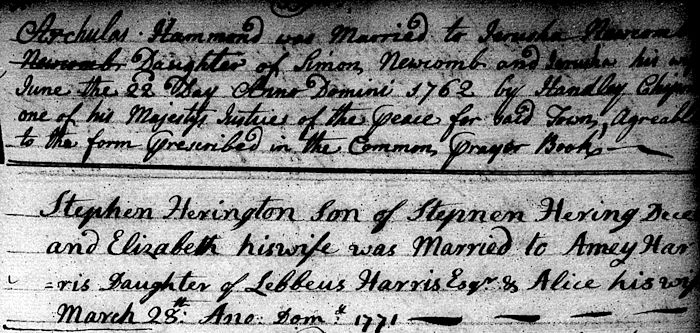 Archulas Hammond was Married to Jerusha Newcomb
Newcomb Daughter of Simon Newcomb and Jerusha his
June the 22 Day Anno Domini 1762 by Handley Chip
one of his Majestys Justries of the peace for said Town, Agreabl
to the form prescribed in the Common prayer Book,
Stephen Herington Son of Stephen Hering Dece
and Elizabeth his wife was Married to Amey Har
=ris Daughter of Lebbeus Harris Esqr. & Alice his wif
March 28th. Ano. Dom. 1771